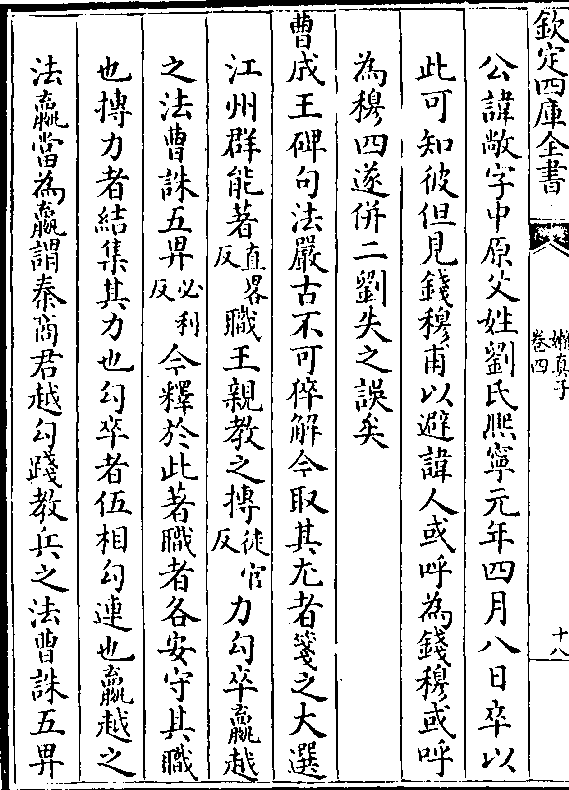 欽定四庫全書
嬾真子
卷四
十八
公諱敞字中原父姓劉氏熈寧元年四月八日卒以
此可知彼但見錢穆甫以避諱人或呼為錢穆或呼
為穆四遂併二劉失之誤矣
曹成王碑句法嚴古不可猝解今取其尤者箋之大選
江州群能著直畧反職王親教之摶徒官反力勾卒嬴越
之法曹誅五畀必利反今釋於此著職者各安守其職
也摶力者結集其力也勾卒者伍相勾連也嬴越之
法嬴當為嬴謂秦商君越勾踐教兵之法曹誅五畀